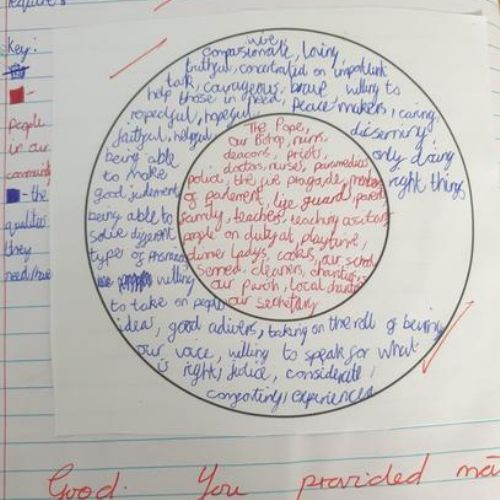 require
Key:
people
in our
community
- the
qualities
they
need/have
wise
compassionate, loving
truthful, concentrated on important
task, courageous, brave willing to
help those in need, Peace makers, caring,
respectful, hopeful,
discerning
faithful, helpful
only doing
right things
being able
to make
good judement
being able to
solve diggerent
types of
willing
to take on people
idea, good adivers, taking on the roll of being
our voice, willing to speak for what
is right, justice, considerate,
comgorting, experiences
The Pope,
our Bishop, nuns,
deacons, priets,
doctors, nurses, paramedics
police, the fire
of parlement, lige guard,
family, teachers, teaching
people on duty at playtime,
dinner ladys, cooks, our school
cleaners, charities,
our parish, local
our secretary
Good. You provided